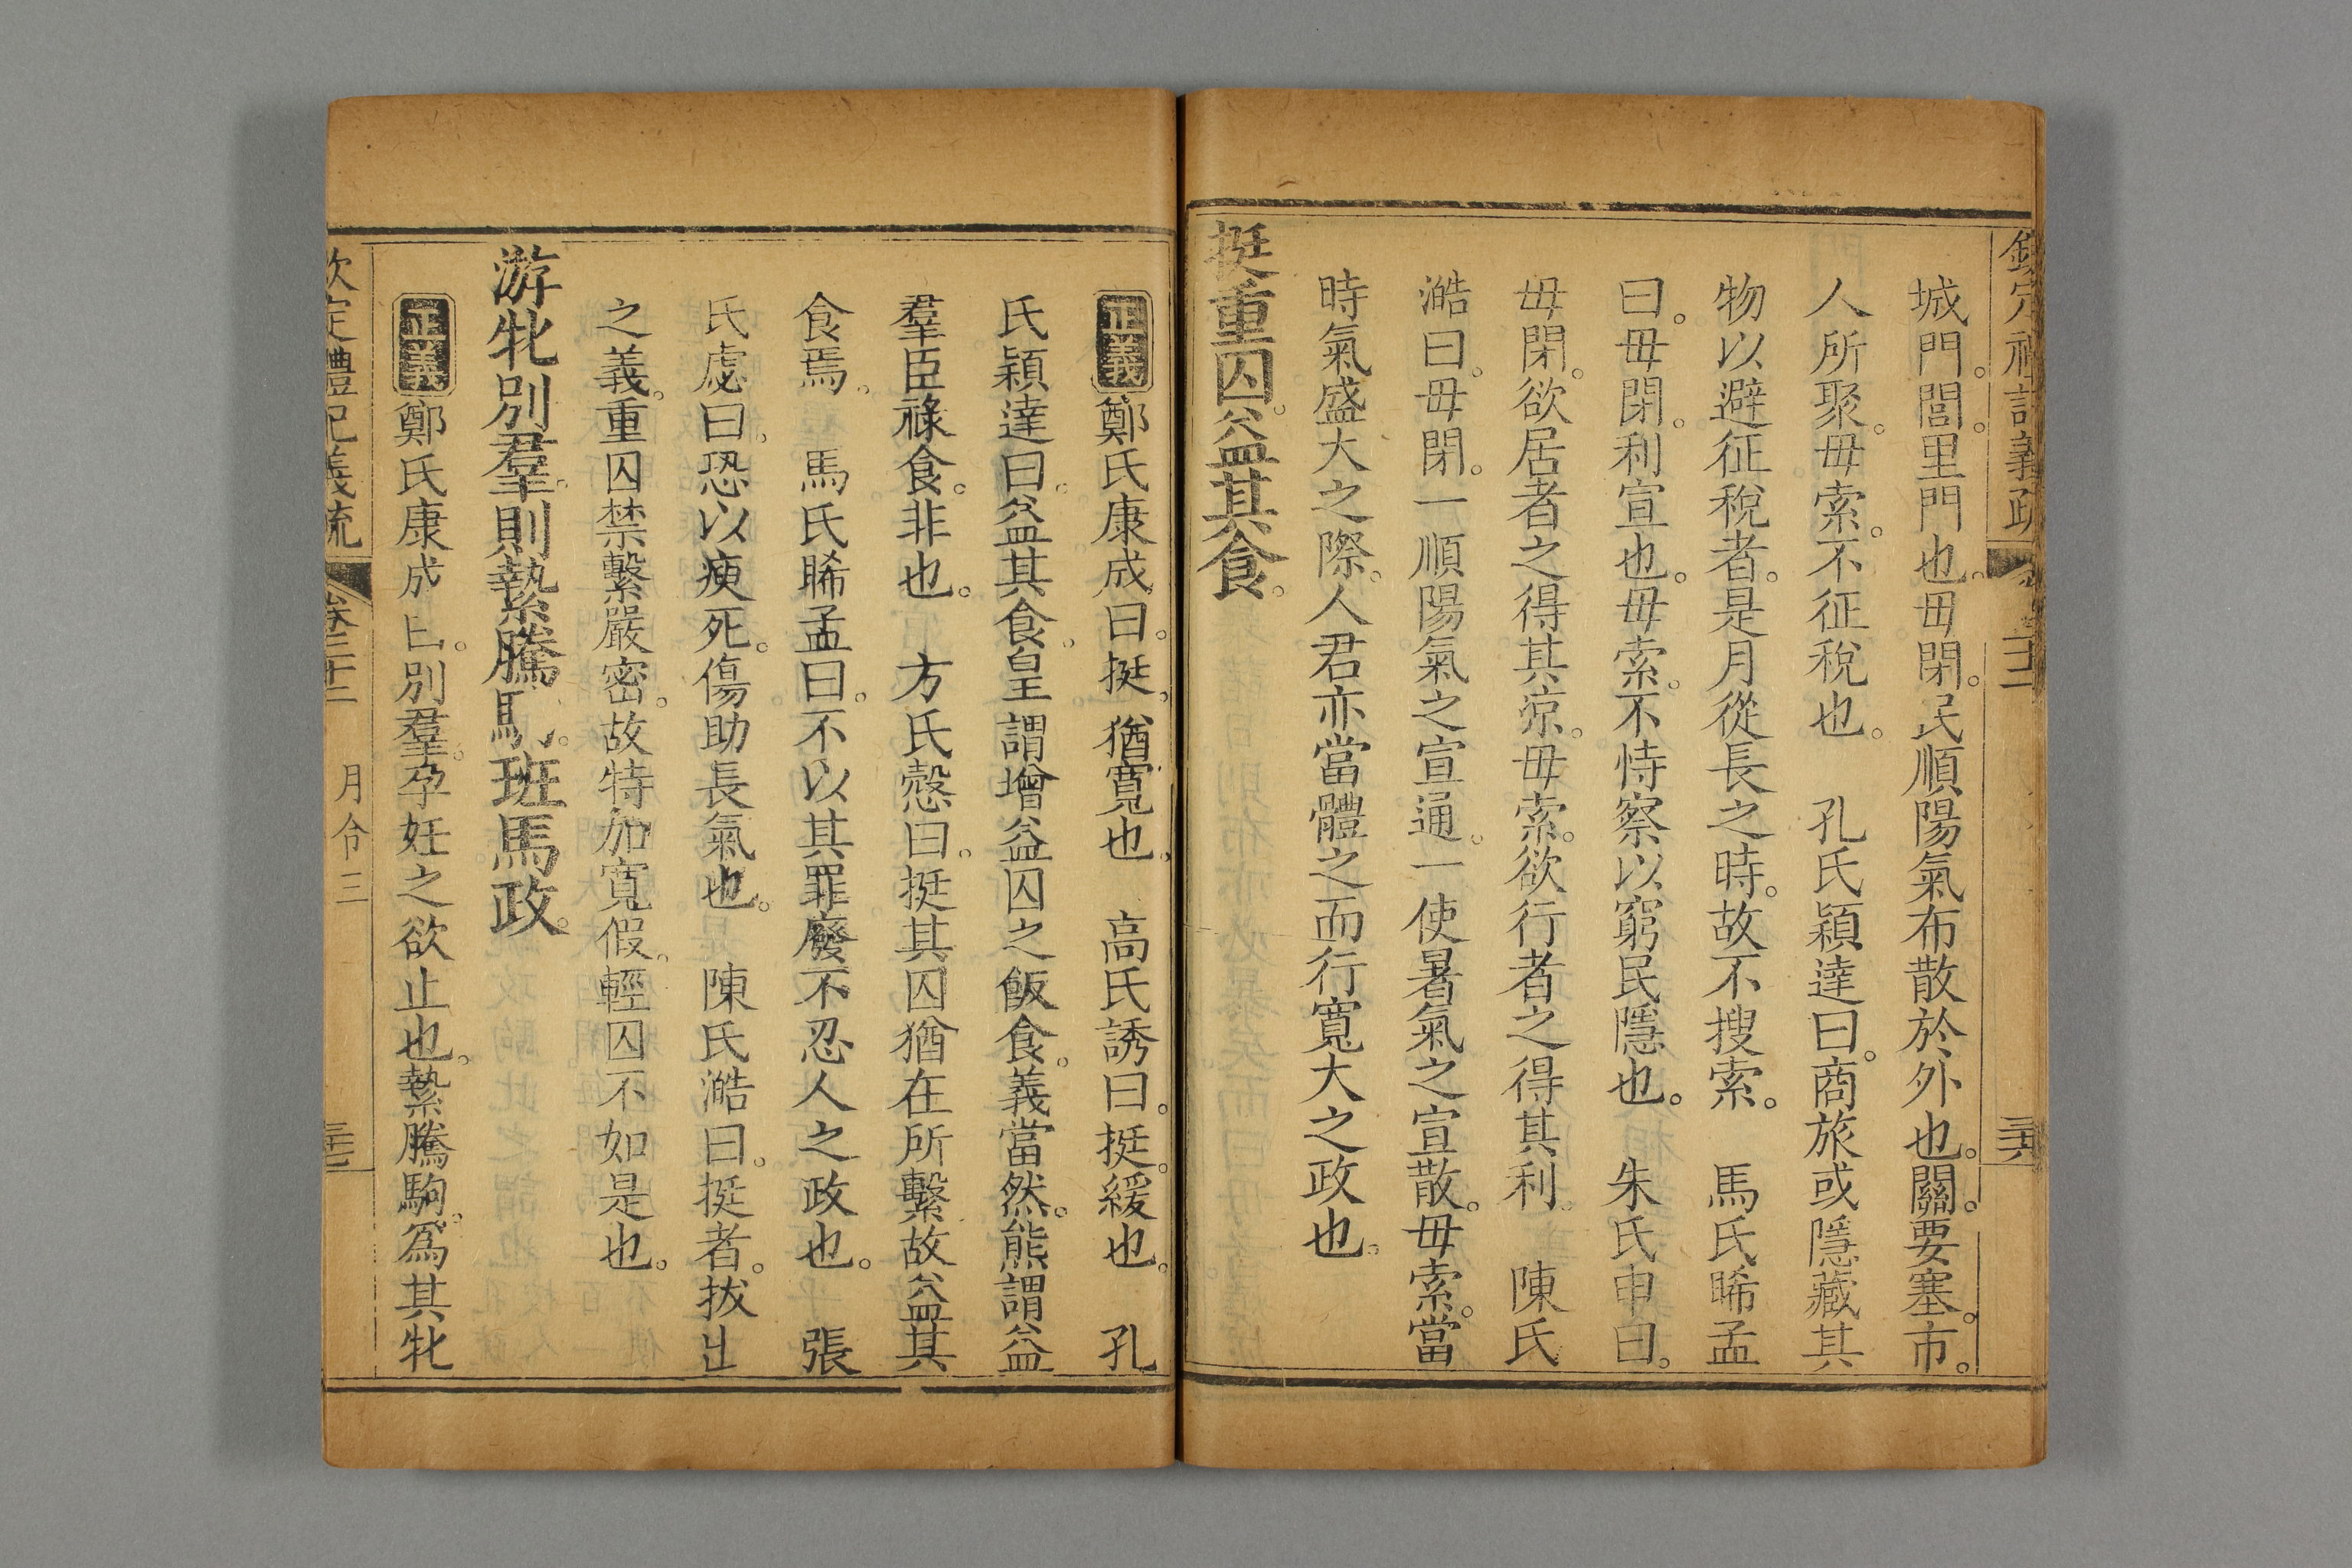 欽定禮記義疏 卷二十二 三十六
城門。閭。里門也。毋閉。民順陽氣布散於外也。關。要塞。市。
人所聚。毋索。不征稅也。　孔氏穎達曰。商旅或隱藏其
物以避征稅者。是月從長之時。故不搜索。　馬氏睎孟
曰。毋閉。利宣也。毋索。不恃察以窮民隱也。　朱氏申曰。
毋閉。欲居者之得其涼。毋索。欲行者之得其利。　陳氏
澔曰。毋閉。一順陽氣之宣通。一使暑氣之宣散。毋索。當
時氣盛大之際。人君亦當體之而行寬大之政也。
挺重囚。益其食。
正義 鄭氏康成曰。挺。猶寬也。　高氏誘曰。挺。緩也。　孔
氏穎達曰。益其食。皇謂增益囚之飯食。義當然。熊謂益
羣臣祿食。非也。　方氏慤曰。挺其囚猶在所繫故益其
食焉。　馬氏睎孟曰。不以其罪廢不忍人之政也。　張
氏虙曰。恐以瘐死。傷助長氣也。　陳氏澔曰。挺者。拔出
之義。重囚禁繫嚴密。故特加寬假。輕囚不如是也。
游牝別羣。則縶騰駒。班馬政。
正義 鄭氏康成曰。別羣。孕妊之欲止也。縶騰駒。為其牝
欽定禮記義疏 卷二十二 月令三 三十七